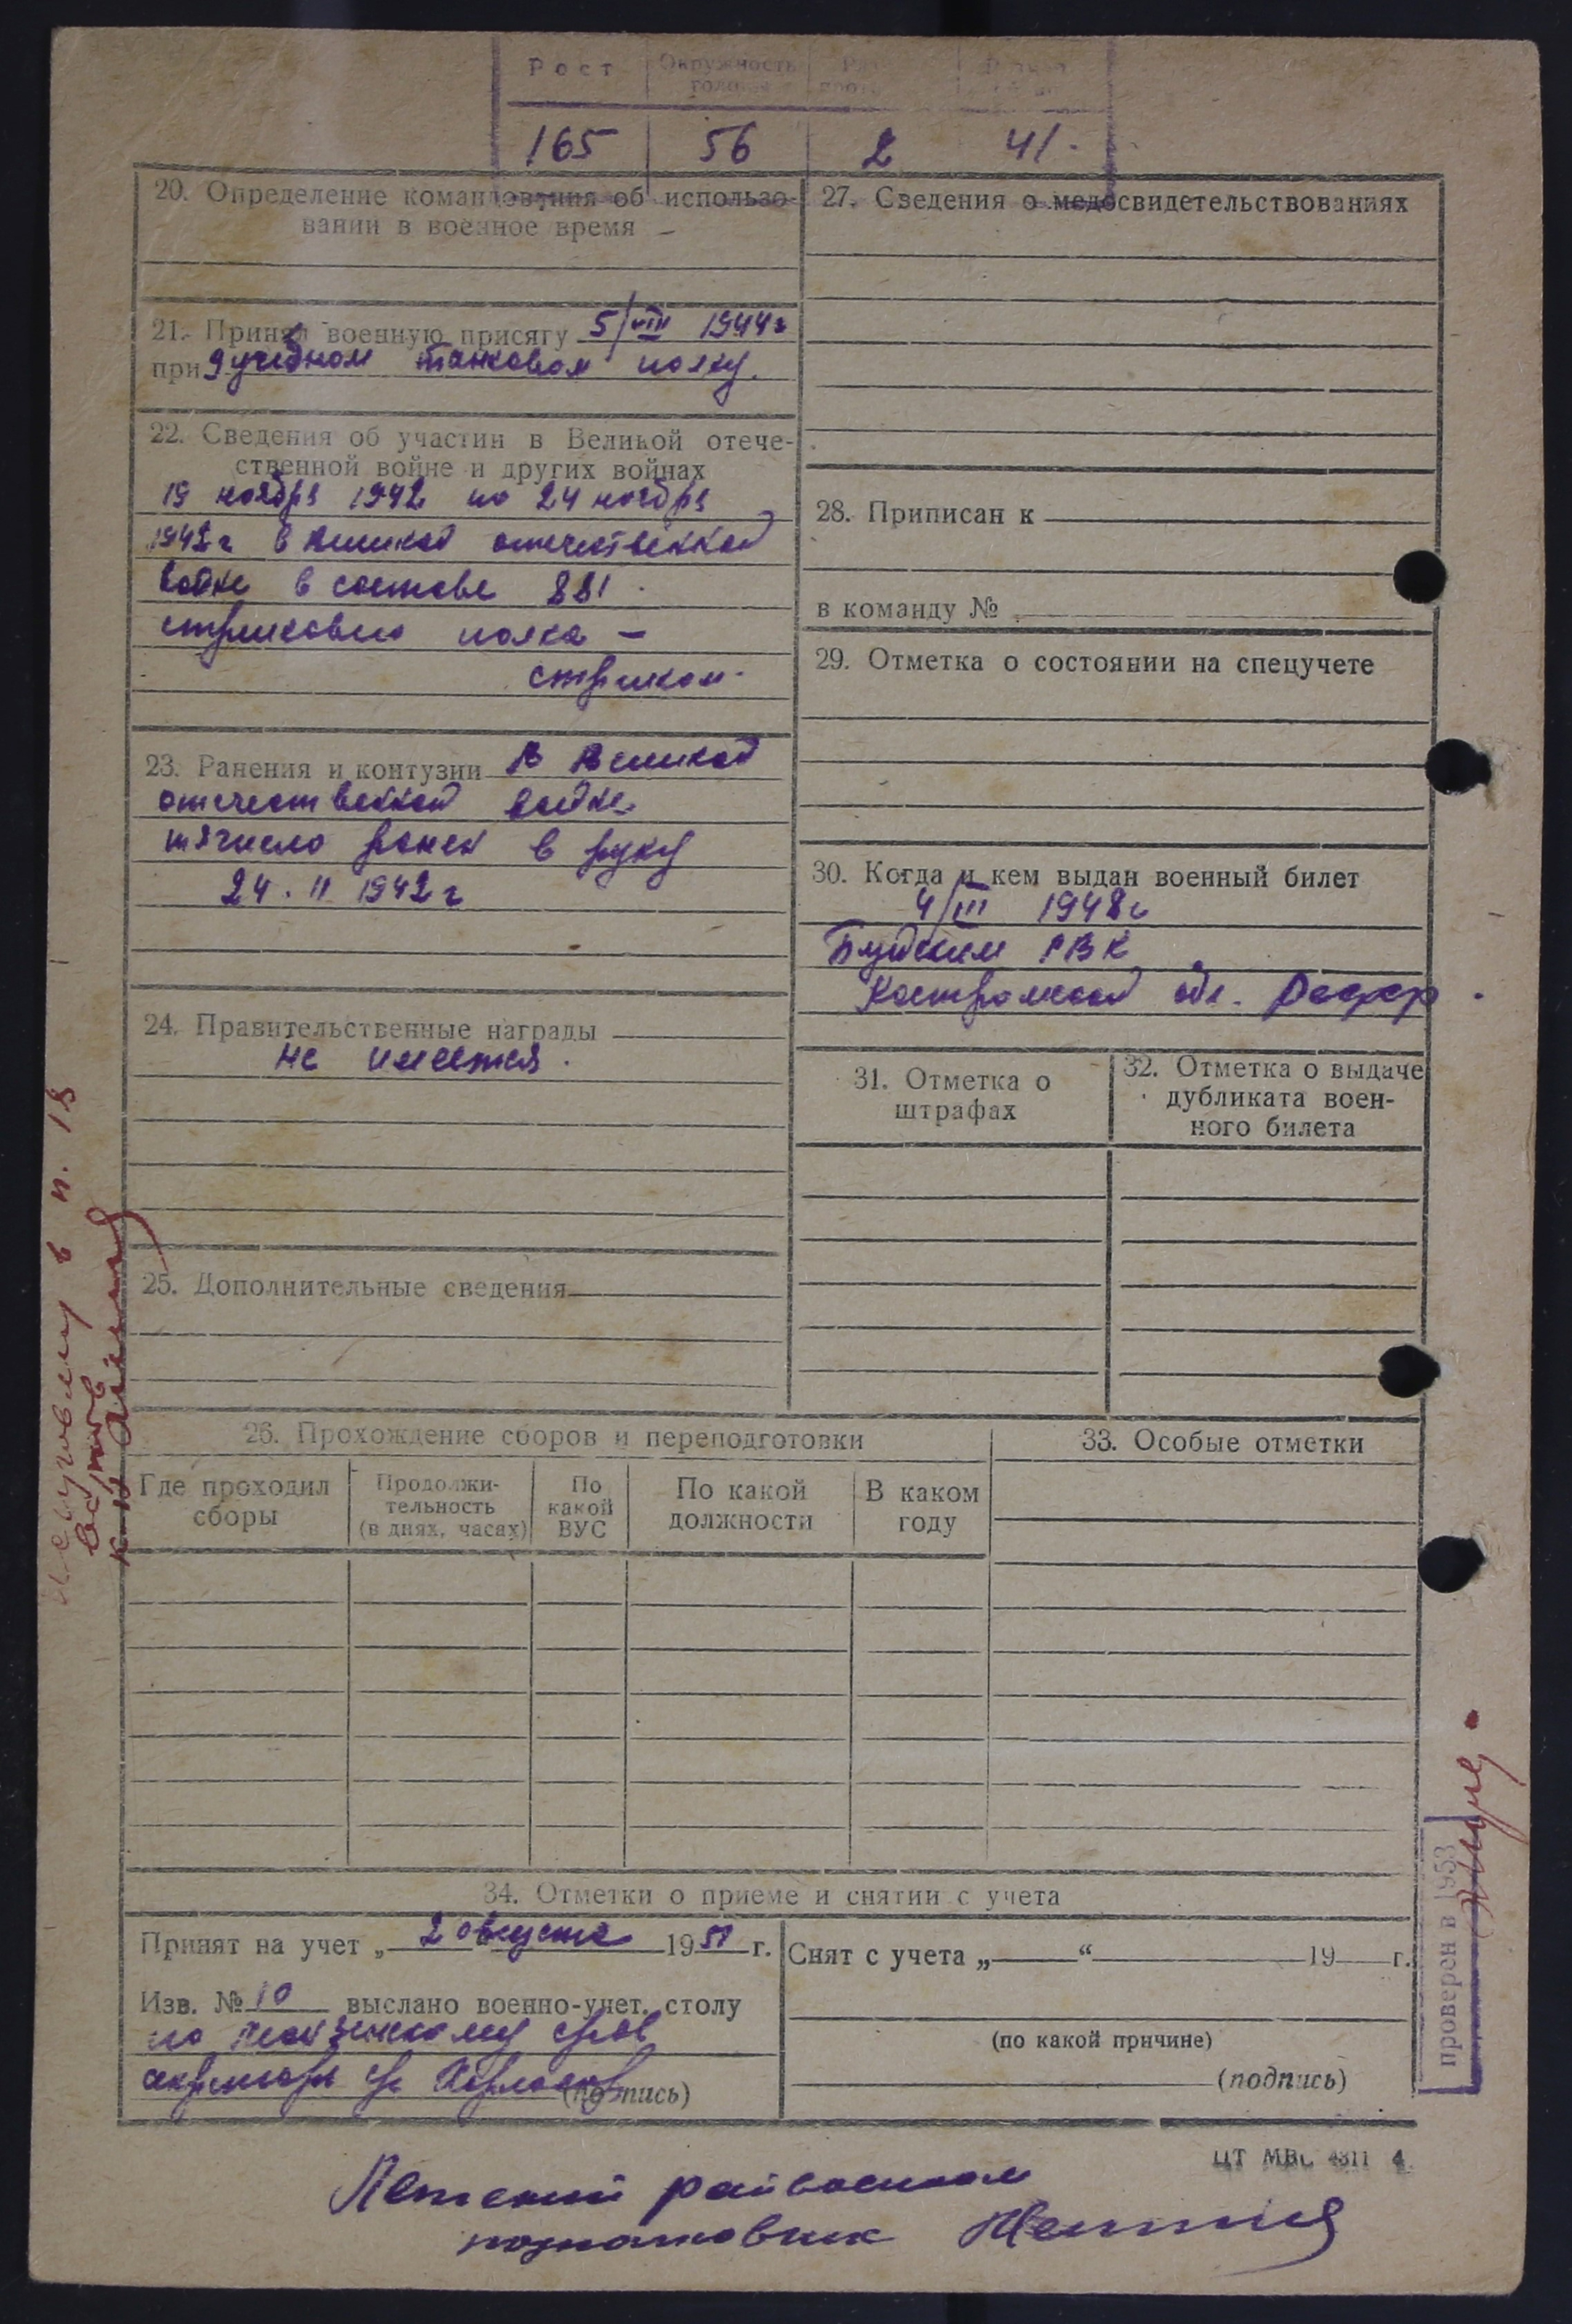 Рост Окружность
165 56 2 41.
20. Определение командования об использо-
вании в военное время —
21. Принял военную присягу 5/VIII 1944г
при 9 учебном танковом полку.
22. Сведения об участии в Великой отече-
ственной войне и других войнах
19 ноября 1942 по 24 ноября
1942г в Великой отечественной
войне в составе 881
стрелкового полка —
стрелком.
23. Ранения и контузии В Великой
отечественной войне
тяжело ранен в руку
24.11 1942г
24. Правительственные награды
не имеется.
25. Дополнительные сведения
26. Прохождение сборов и переподготовки
Где проходил
сборы
Продолжи-
тельность
(в днях, часах)
По
какой
ВУС
По какой
должности
В каком
году
27. Сведения о медосвидетельствованиях
28. Приписан к
в команду №
29. Отметка о состоянии на спецучете
30. Когда и кем выдан военный билет
4/III 1948г
РВК
Костромской обл.
31. Отметка о
штрафах
32. Отметка о выдаче
дубликата воен-
ного билета
33. Особые отметки
34. Отметки о приеме и снятии с учета
Принят на учет „ 2 августа 1951 г.
Изв. № 10 выслано военно-учет. столу
по
(подпись)
Снят с учета „ “ 19 г.
(по какой причине)
(подпись)
ЦТ МВС 4311
райвоенком
подполковник
в п. 18
проверен в 1953